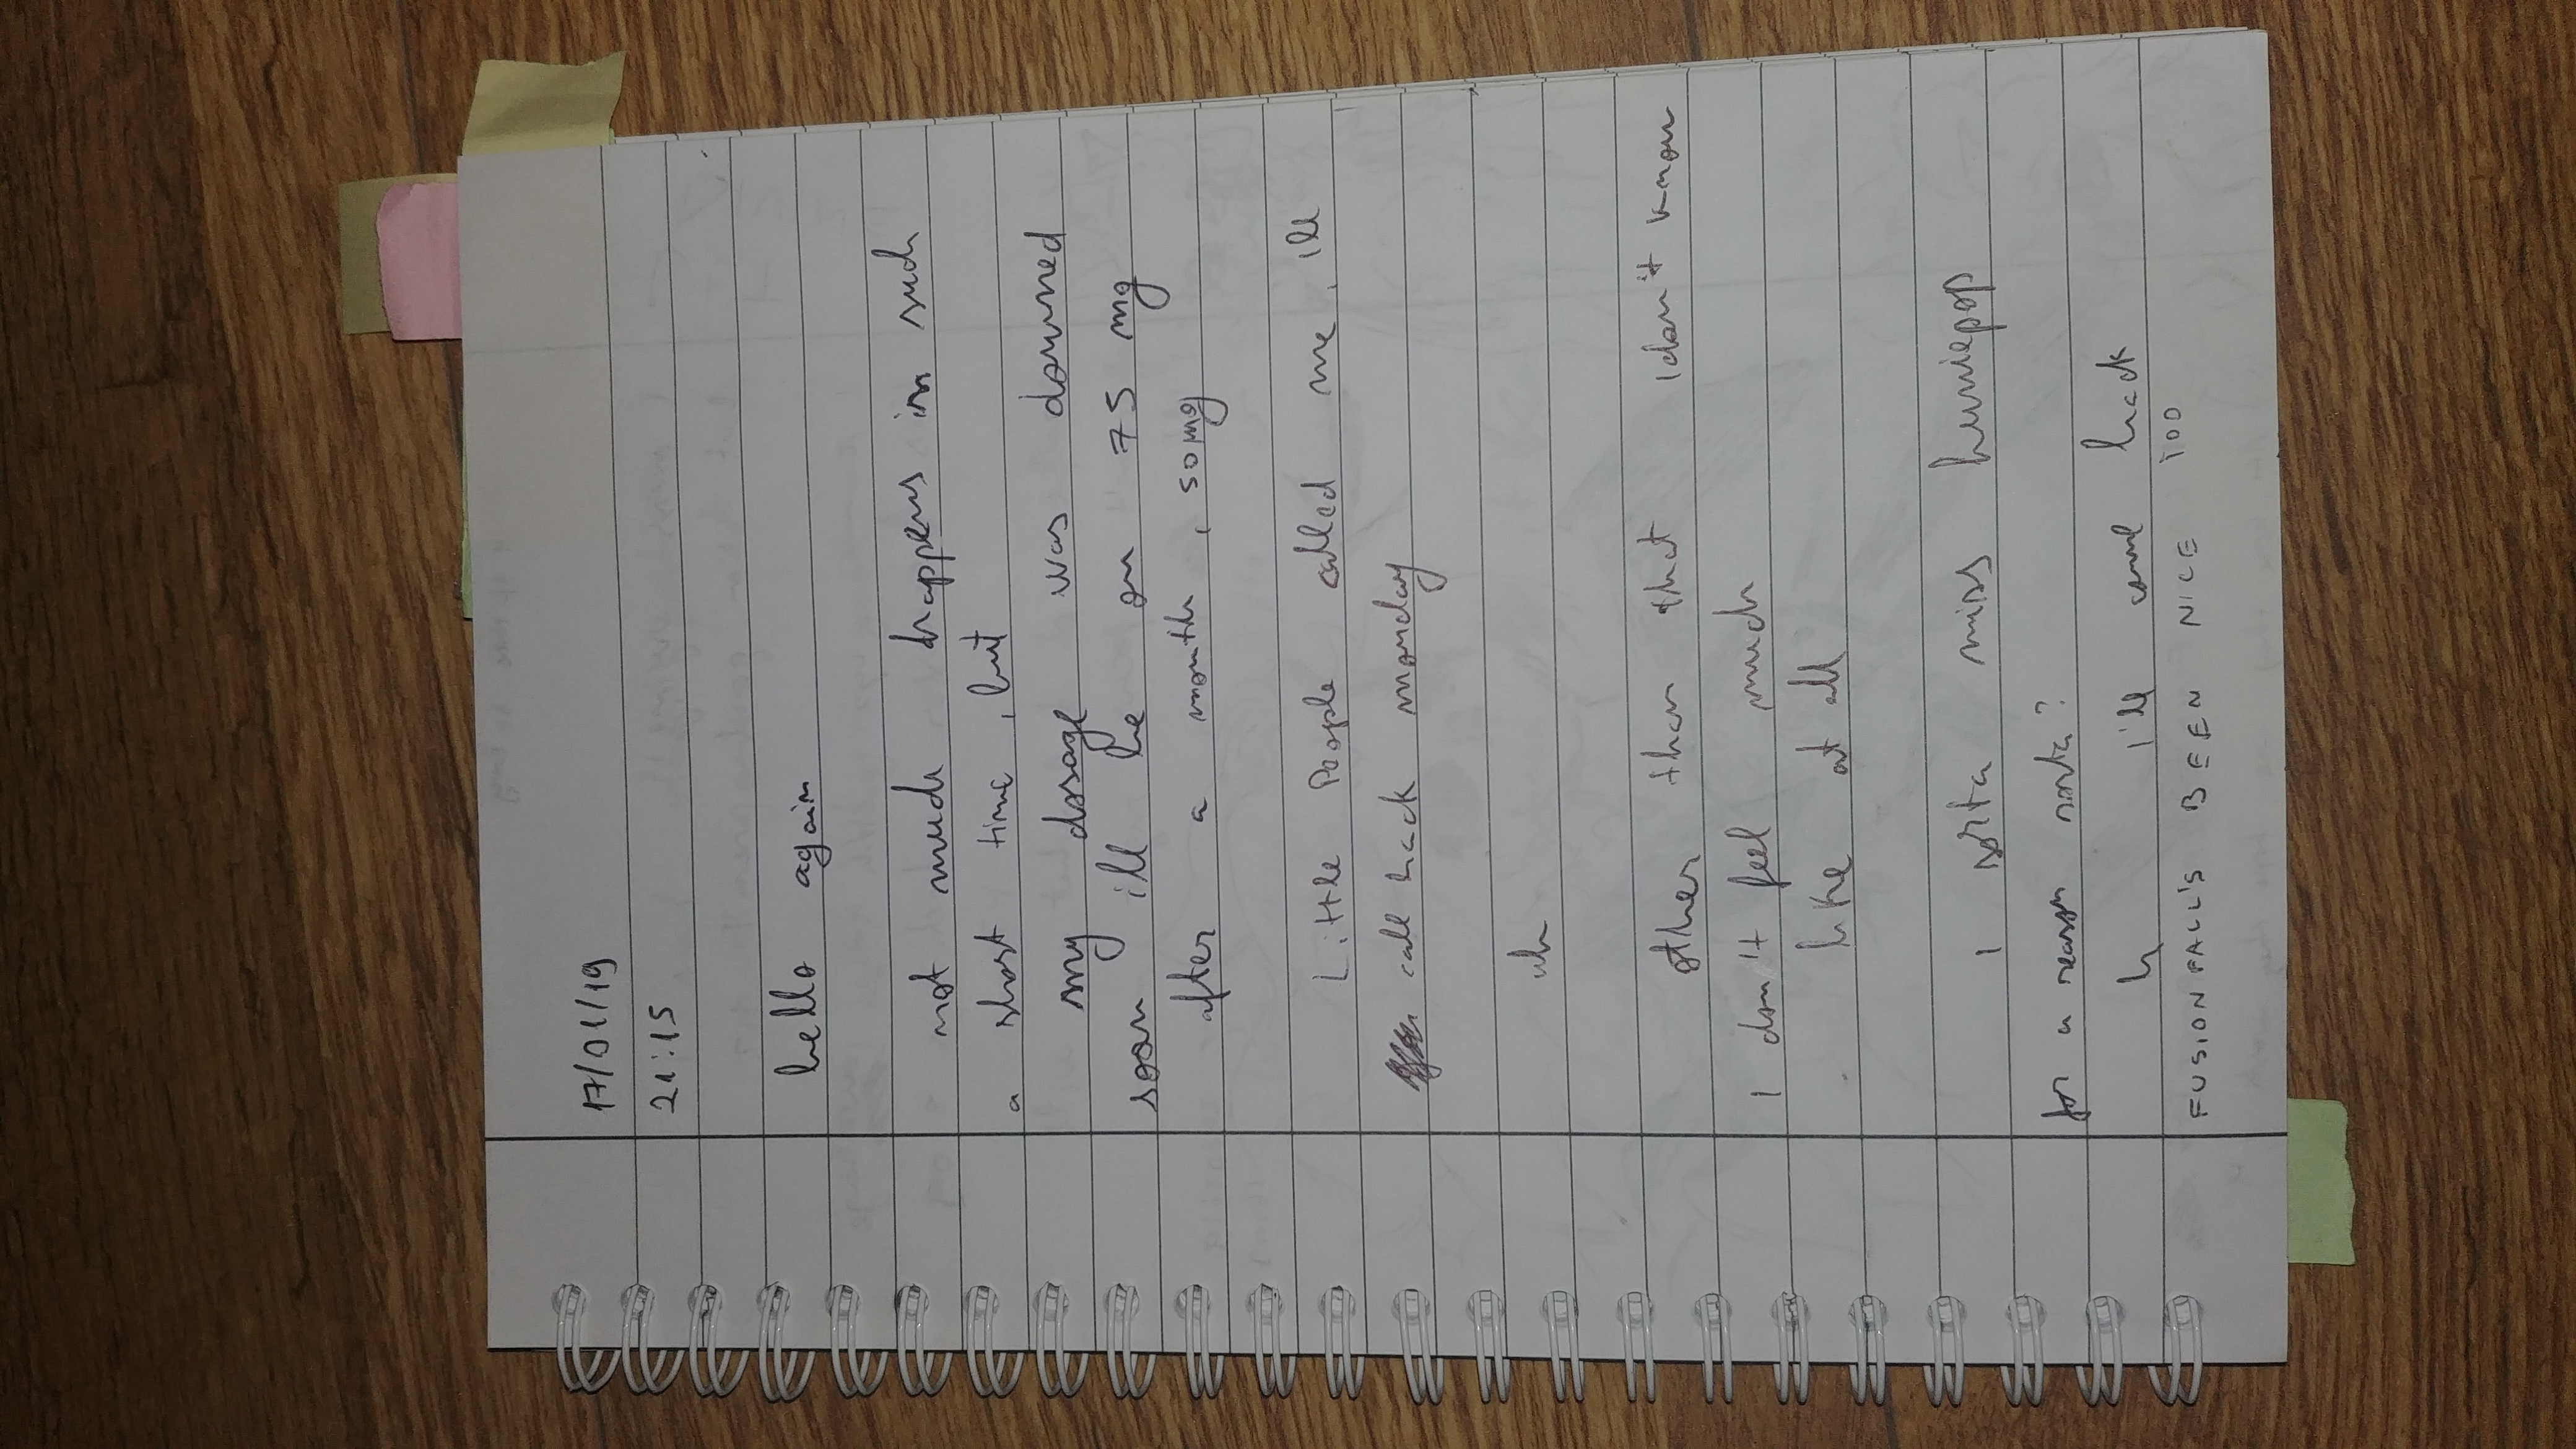 17/01/19
21:15
hello again
not much happens in such
a short time, but
my dosage was downed
soon ill be on 75 mg
after a month, 50mg
Little People called me, ill
call back monday
uh
other than that I don't know
I don't feel much
like at all
I sorta miss huniepop
for a reason sorta?
h I'll come back
FUSIONFALL'S BEEN NICE TOO